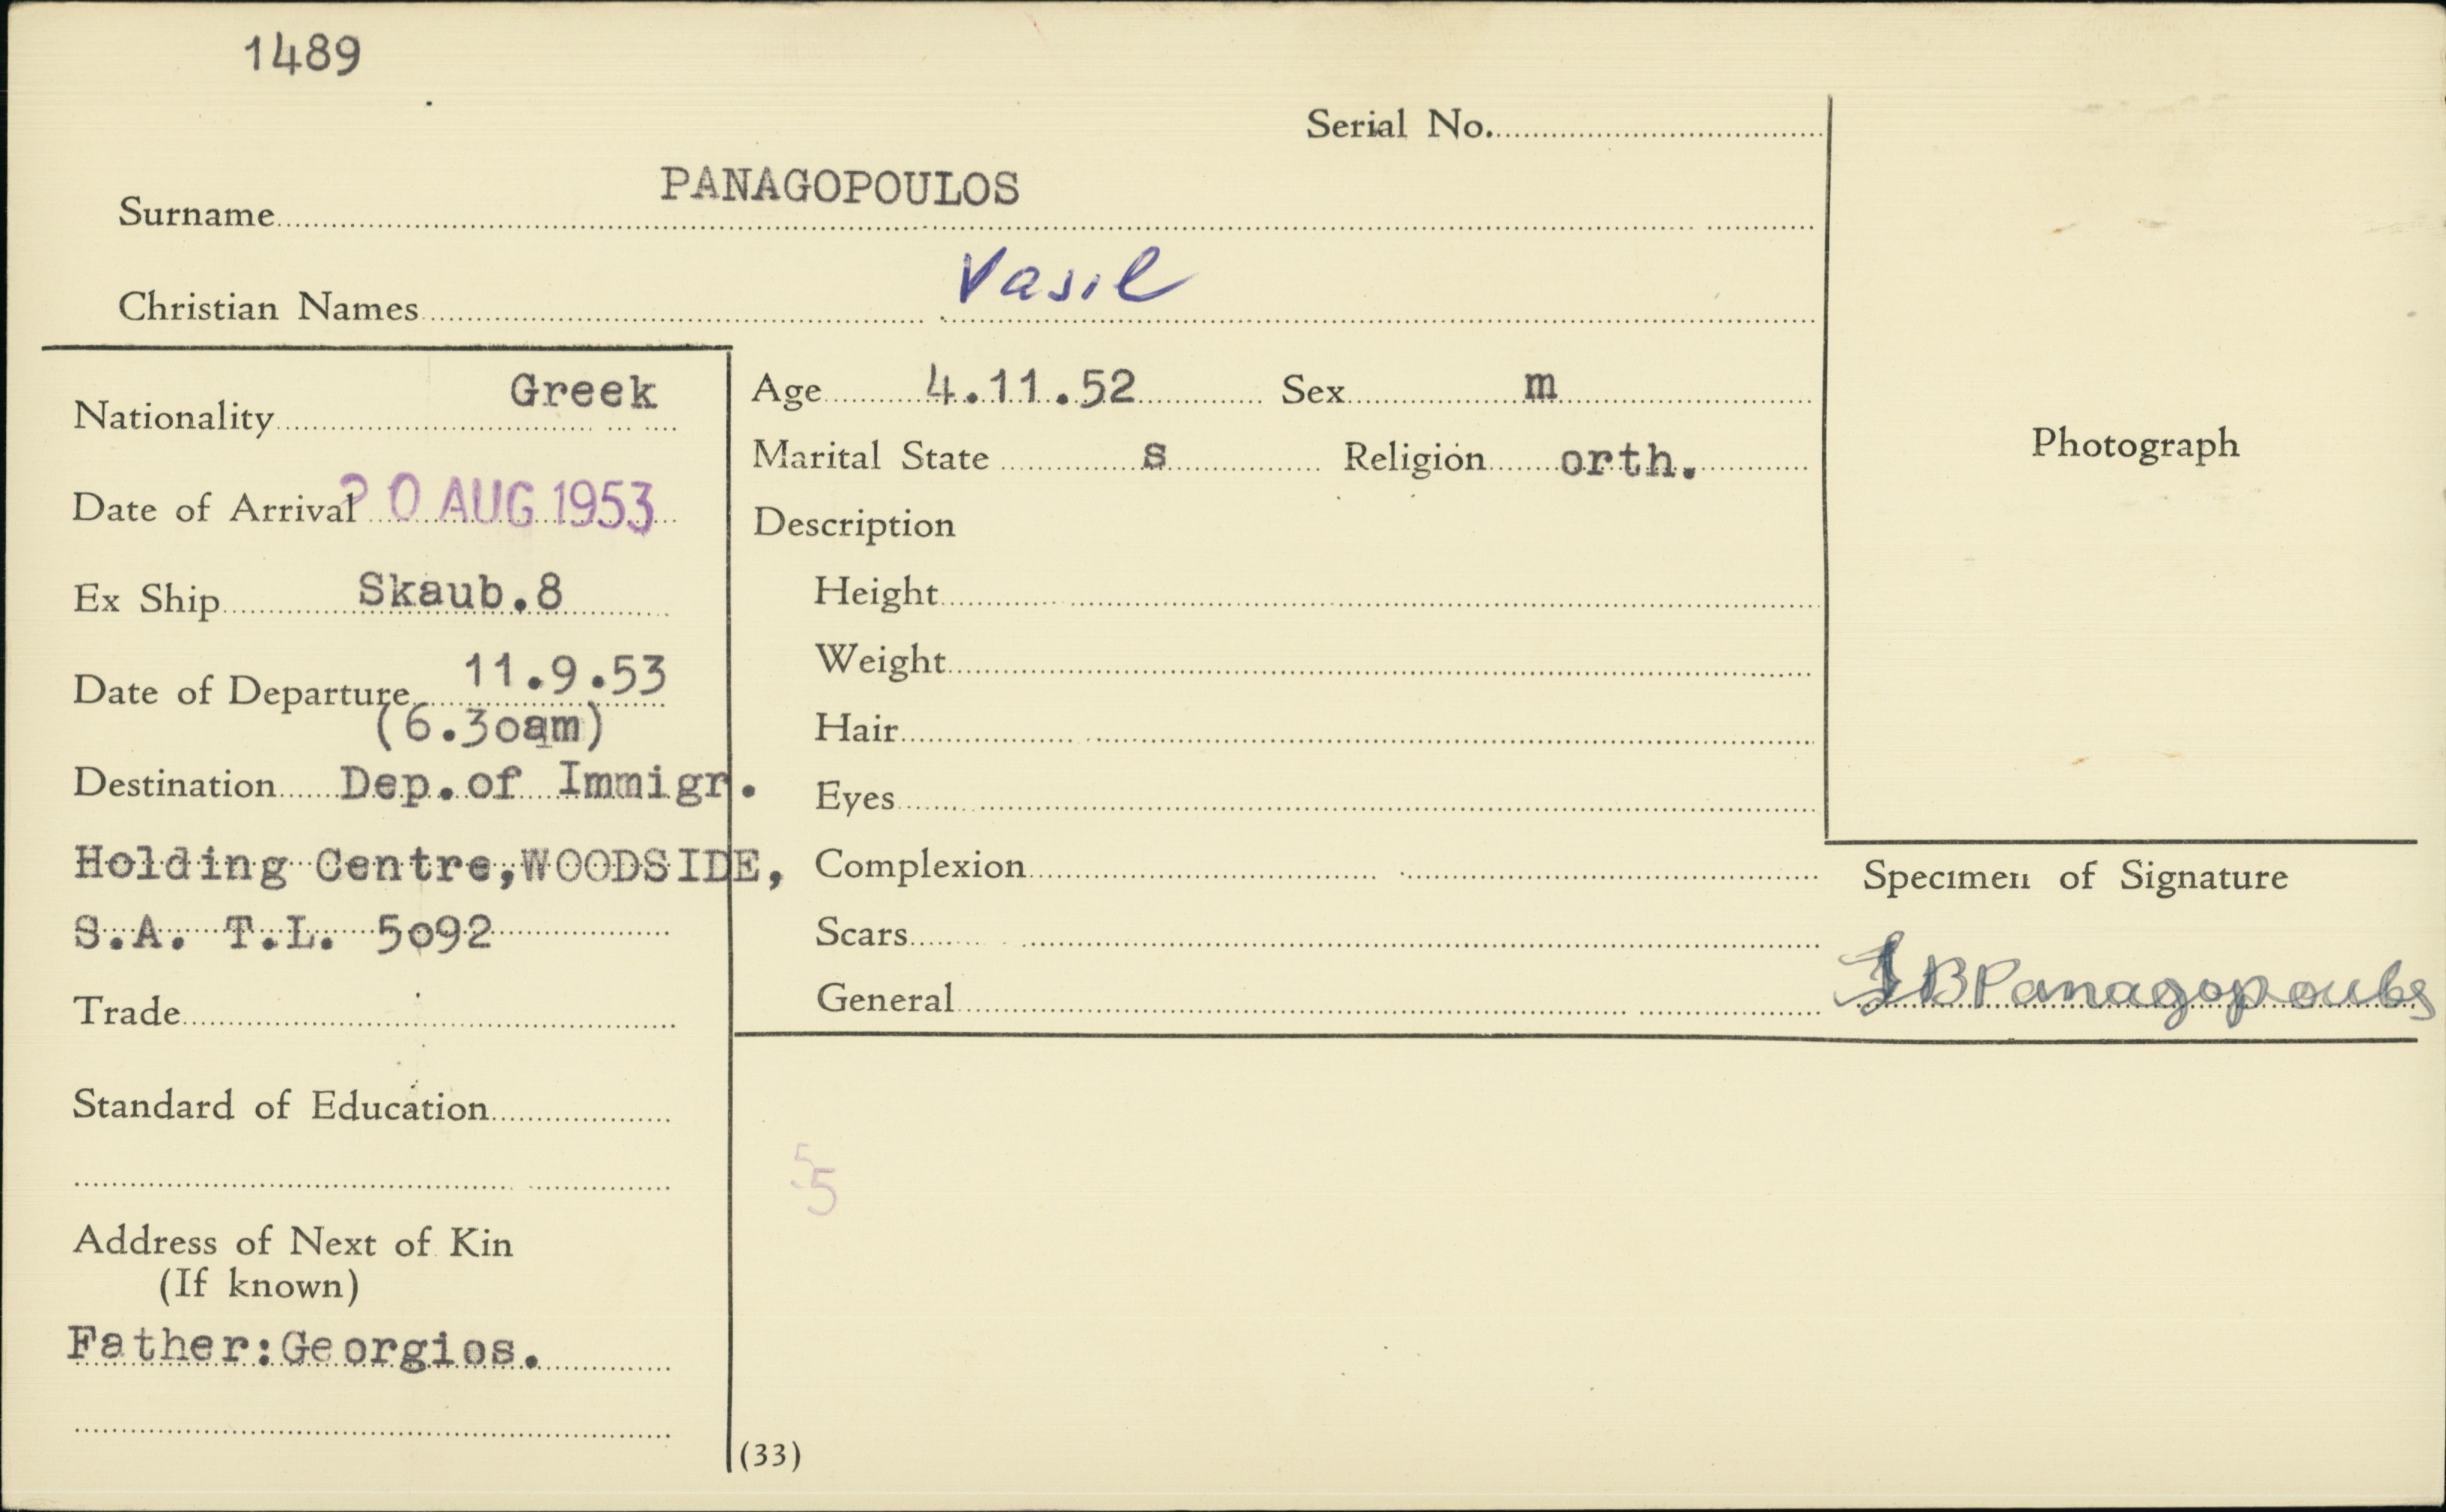 1489
Serial No.
PANAGOPOULOS
Surname
Vasil
Christian Names
Nationality Greek
Date of Arrival 20 AUG 1953
Ex Ship Skaub.8
Date of Departure 11.9.53
(6.30am)
Destination Dep.of Immigr.
Holding Centre,WOODSIDE,
S.A. T.L. 5092
Trade
Standard of Education
Address of Next of Kin
(If known)
Father:Georgios.
Age 4.11.52 Sex m
Marital State s Religion orth.
Description
Height
Weight
Hair
Eyes
Complexion
Scars
General
55
(33)
Photograph
Specimen of Signature
BPanagopoulos